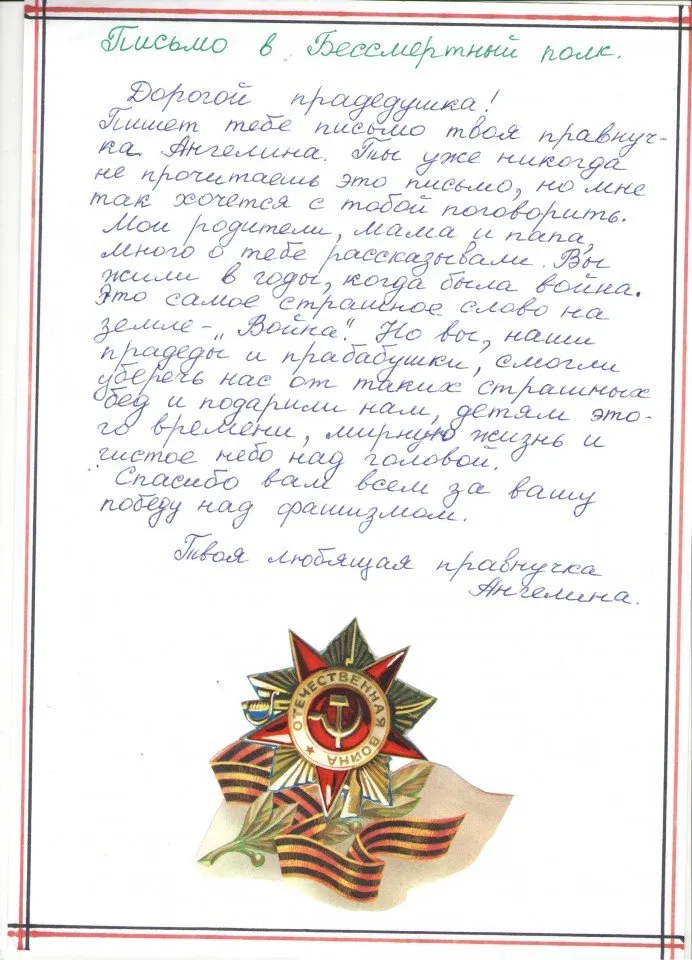 Письмо в Бессмертный полк.
Дорогой прадедушка!
Пишет тебе письмо твоя правнуч-
ка Ангелина. Ты уже никогда
не прочитаешь это письмо, но мне
так хочется с тобой поговорить.
Мои родители, мама и папа,
много о тебе рассказывали. Вы
жили в годы, когда была война.
Это самое страшное слово на
земле - „Война". Но вы, наши
прадеды и прабабушки, смогли
уберечь нас от таких страшных
бед и подарили нам, детям это-
го времени, мирную жизнь и
чистое небо над головой.
Спасибо вам всем за вашу
победу над фашизмом.
Твоя любящая правнучка
Ангелина.
ОТЕЧЕСТВЕННАЯ ВОЙНА